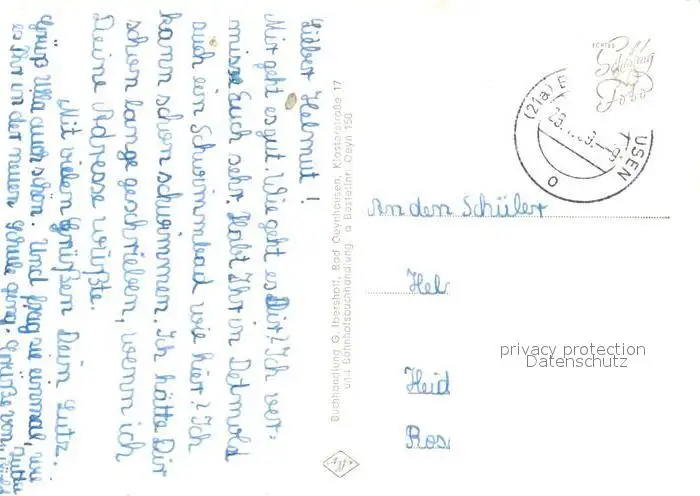 Lieber Helmut!
Mir geht es gut. Wie geht es Dir? Ich ver=
misse Euch sehr. Habt Ihr in Detmold
auch ein Schwimmbad wie hier? Ich
kann schon schwimmen. Ich hätte Dir
schon lange geschrieben, wenn ich
Deine Adresse wüßte.
Mit vielen Grüßen Dein Lutz.
Grüß Ulla auch schön. Und frag sie einmal, wie
es ihr in der neuen Schule ging. Grüße von
Buchhandlung G. Ibershoff, Bad Oeynhausen, Klosterstraße 17
und Bahnhofsbuchhandlung a Bestellnr. Oeyn 150
ECHTES
Foto
(21a)
USEN
An den Schüler
Hel
Heid
Ros
privacy protection
Datenschutz